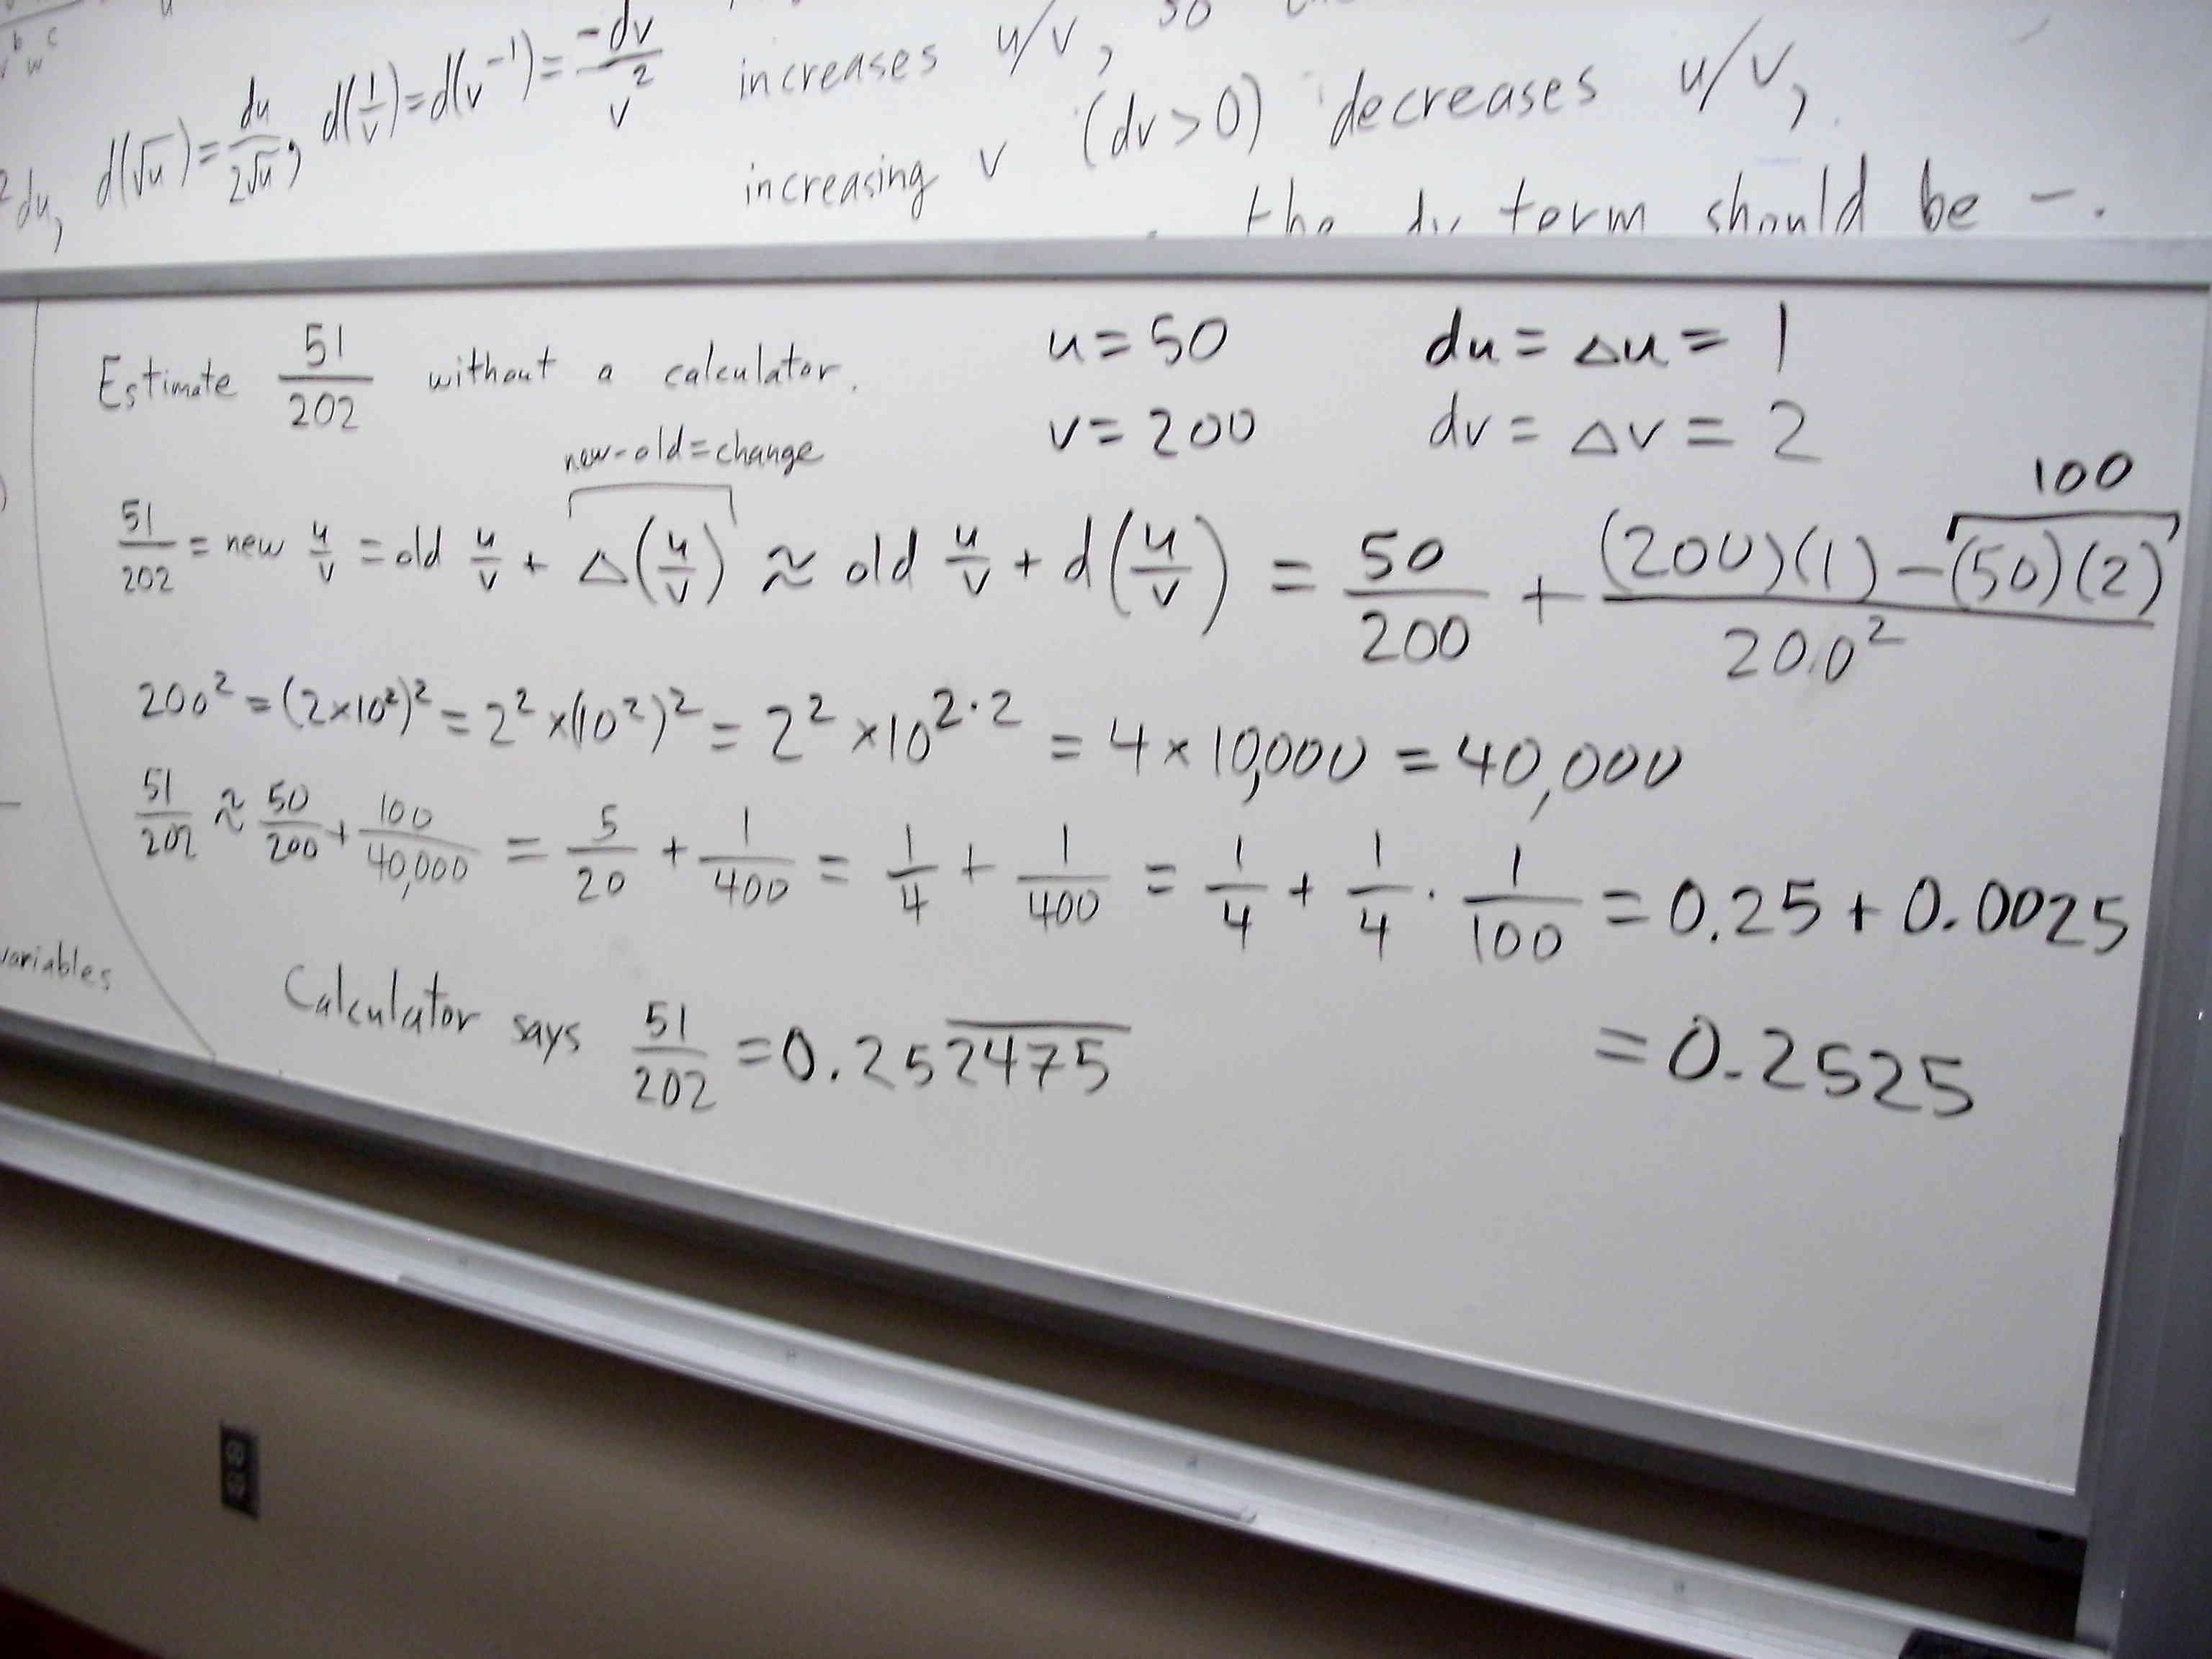 b c
w
² du, d(√u) = du/2√u, d(1/v) = d(v⁻¹) = -dv/v²
increases u/v, so
increasing v (dv>0) decreases u/v,
the dv term should be −.
Estimate 51/202 without a calculator.
u = 50 du = Δu = 1
v = 200 dv = Δv = 2
new-old=change
100
51/202 = new u/v = old u/v + Δ(u/v) ≈ old u/v + d(u/v) = 50/200 + (200)(1) − (50)(2)/200²
200² = (2×10²)² = 2² ×(10²)² = 2² ×10^2·2 = 4 × 10,000 = 40,000
51/202 ≈ 50/200 + 100/40,000 = 5/20 + 1/400 = 1/4 + 1/400 = 1/4 + 1/4 · 1/100 = 0.25 + 0.0025
variables
Calculator says 51/202 = 0.25̅2̅4̅7̅5̅
= 0.2525